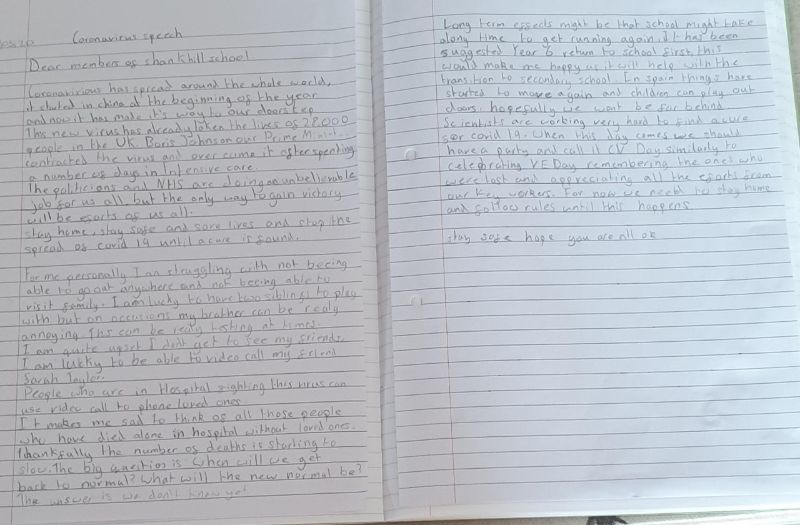 Coronavirus speech
Dear members of shankhill school
Coronavirious has spread around the whole world,
it started in china at the beginning of the year
and now it has make it's way to our doorstep
This new virus has already taken the lives of 28,000
people in the UK. Boris Johnson our Prime Minist
contracted the virus and over came it after spending
a number of days in Intensive care.
The politicians and NHS are doing an unbelievable
job for us all, but the only way to gain victory
will be eforts of us all.
stay home, stay safe and save lives and stop the
spread of covid 19 until a cure is found.
For me personally I am struggling with not beeing
able to go out anywhere and not beeing able to
visit family. I am lucky to have two siblings to play
with but on occasions my brother can be realy
annoying. This can be realy testing at times.
I am quite upset I don't get to see my friends.
I am lukky to be able to video call my friend
Sarah Taylor.
People who are in Hospital fighting this virus can
use video call to phone loved ones.
It makes me sad to think of all those people
who have died alone in hospital without loved ones.
thankfully the number of deaths is starting to
slow. The big question is when will we get
back to normal? What will the new normal be?
The answer is we don't know yet
Long term effects might be that school might take
along time to get running again. It has been
suggested Year 6 return to school first, this
would make me happy as it will help with the
transition to secondary school. In spain things have
started to move again and children can play out
doors. hopefully we wont be far behind
Scientists are working very hard to find a cure
for covid 19. When this day comes we should
have a party and call it CV Day similarly to
celebrating VE Day remembering the ones who
were lost and appreciating all the eforts from
our Key workers. For now we need to stay home
and follow rules until this happens
stay safe hope you are all ok